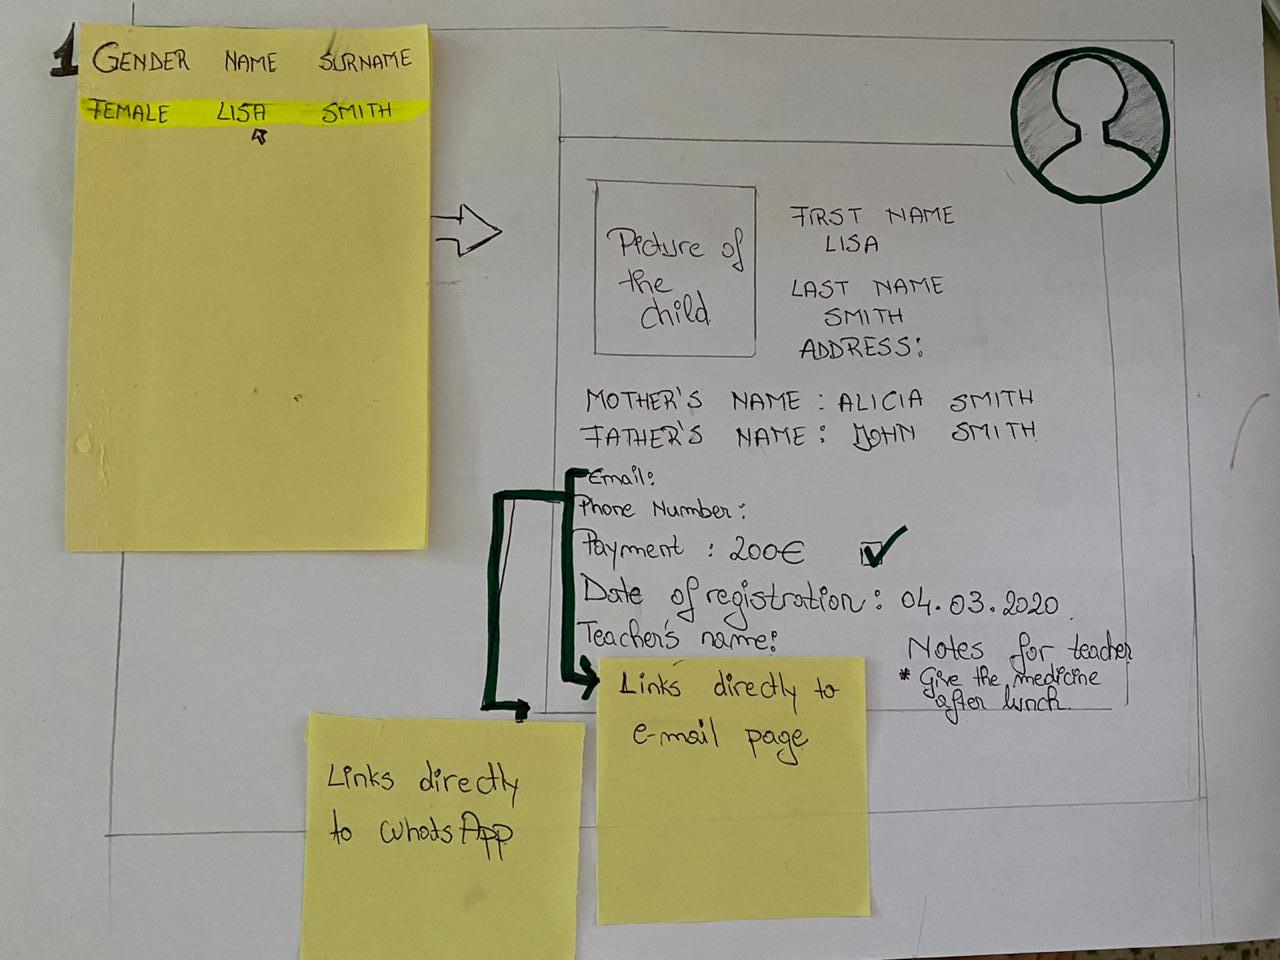 1
GENDER NAME SURNAME
FEMALE LISA SMITH
Picture of
the
child
FIRST NAME
LISA
LAST NAME
SMITH
ADDRESS:
MOTHER'S NAME : ALICIA SMITH
FATHER'S NAME : JOHN SMITH
Email:
Phone Number:
Payment : 200€
Date of registration: 04.03.2020
Teacher's name:
Notes for teacher
* Give the medicine
after lunch
Links directly to
e-mail page
Links directly
to WhatsApp